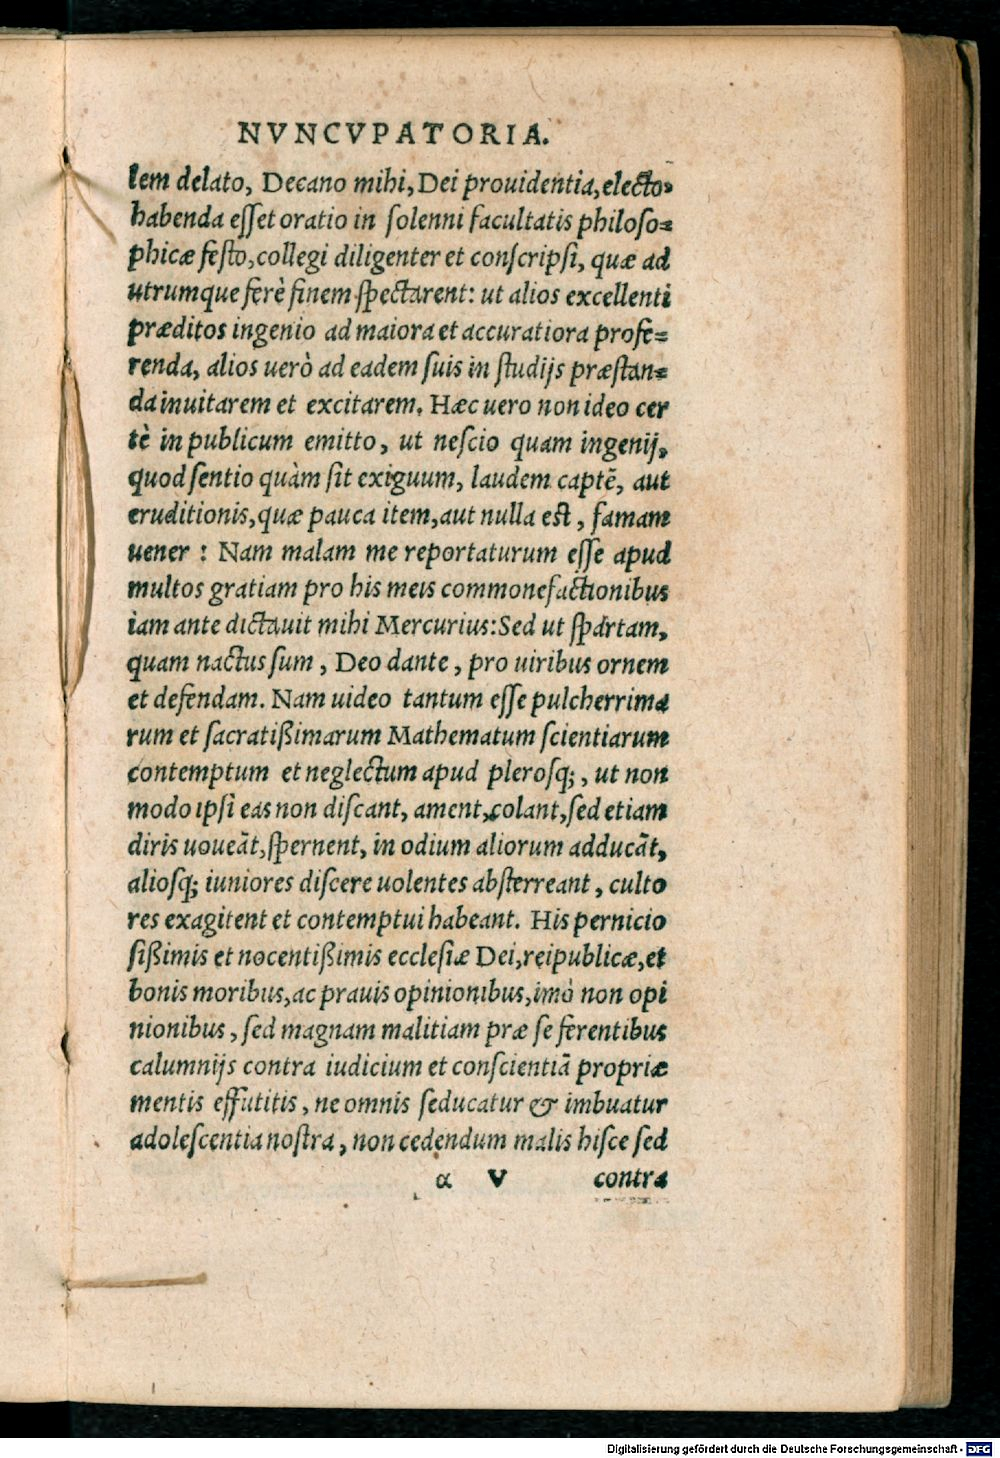 NVNCVPATORIA.
lem delato, Decano mihi, Dei prouidentia, electo,
habenda esset oratio in solenni facultatis philoso=
phicæ festo, collegi diligenter et conscripsi, quæ ad
utrumque ferè finem spectarent: ut alios excellenti
præditos ingenio ad maiora et accuratiora profe=
renda, alios uerò ad eadem suis in studijs præstan=
da inuitarem et excitarem. Hæc uero non ideo cer
tè in publicum emitto, ut nescio quam ingenij,
quod sentio quàm sit exiguum, laudem captē, aut
eruditionis, quæ pauca item, aut nulla est, famam
uener : Nam malam me reportaturum esse apud
multos gratiam pro his meis commonefactionibus
iam ante dictauit mihi Mercurius: Sed ut spartam,
quam nactus sum, Deo dante, pro uiribus ornem
et defendam. Nam uideo tantum esse pulcherrima
rum et sacratißimarum Mathematum scientiarum
contemptum et neglectum apud plerosq;, ut non
modo ipsi eas non discant, ament, colant, sed etiam
diris uoueāt, spernent, in odium aliorum adducāt,
aliosq; iuniores discere uolentes absterreant, culto
res exagitent et contemptui habeant. His pernicio
sißimis et nocentißimis ecclesiæ Dei, reipublicæ, et
bonis moribus, ac prauis opinionibus, imò non opi
nionibus, sed magnam malitiam præ se ferentibus
calumnijs contra iudicium et conscientiā propriæ
mentis effutitis, ne omnis seducatur & imbuatur
adolescentia nostra, non cedendum malis hisce sed
α V contra
Digitalisierung gefördert durch die Deutsche Forschungsgemeinschaft - DFG